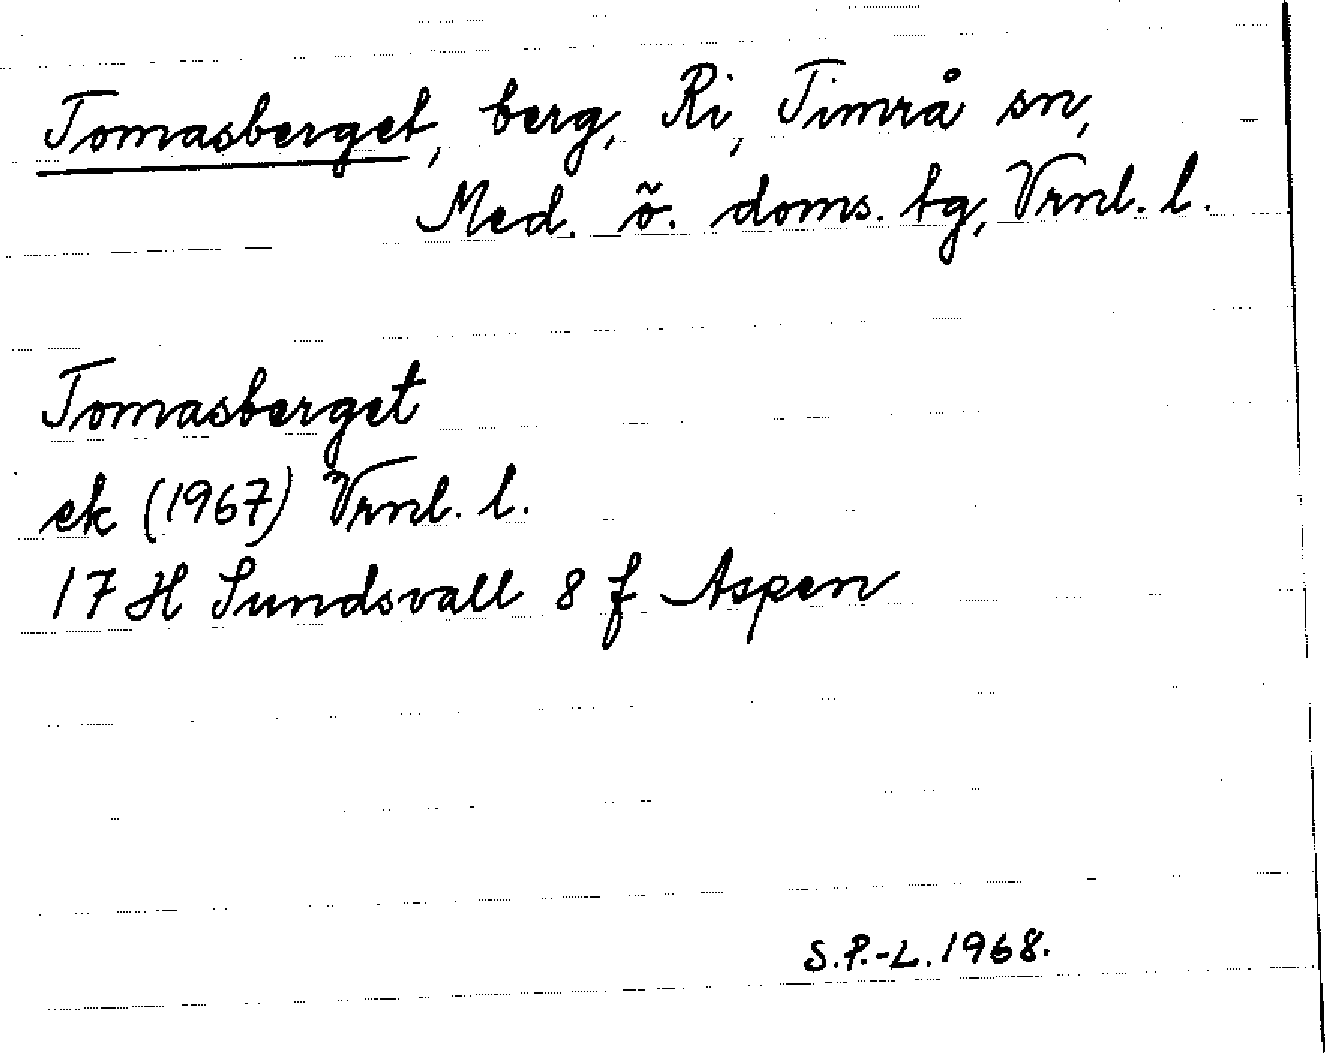 Tomasberget, berg, Ri, Timrå sn,
Med. ö. doms. tg, Vrnl. l.
Tomasberget
ek (1967) Vrnl. l.
17 H Sundsvall 8 f Aspen
S.P.-L. 1968.